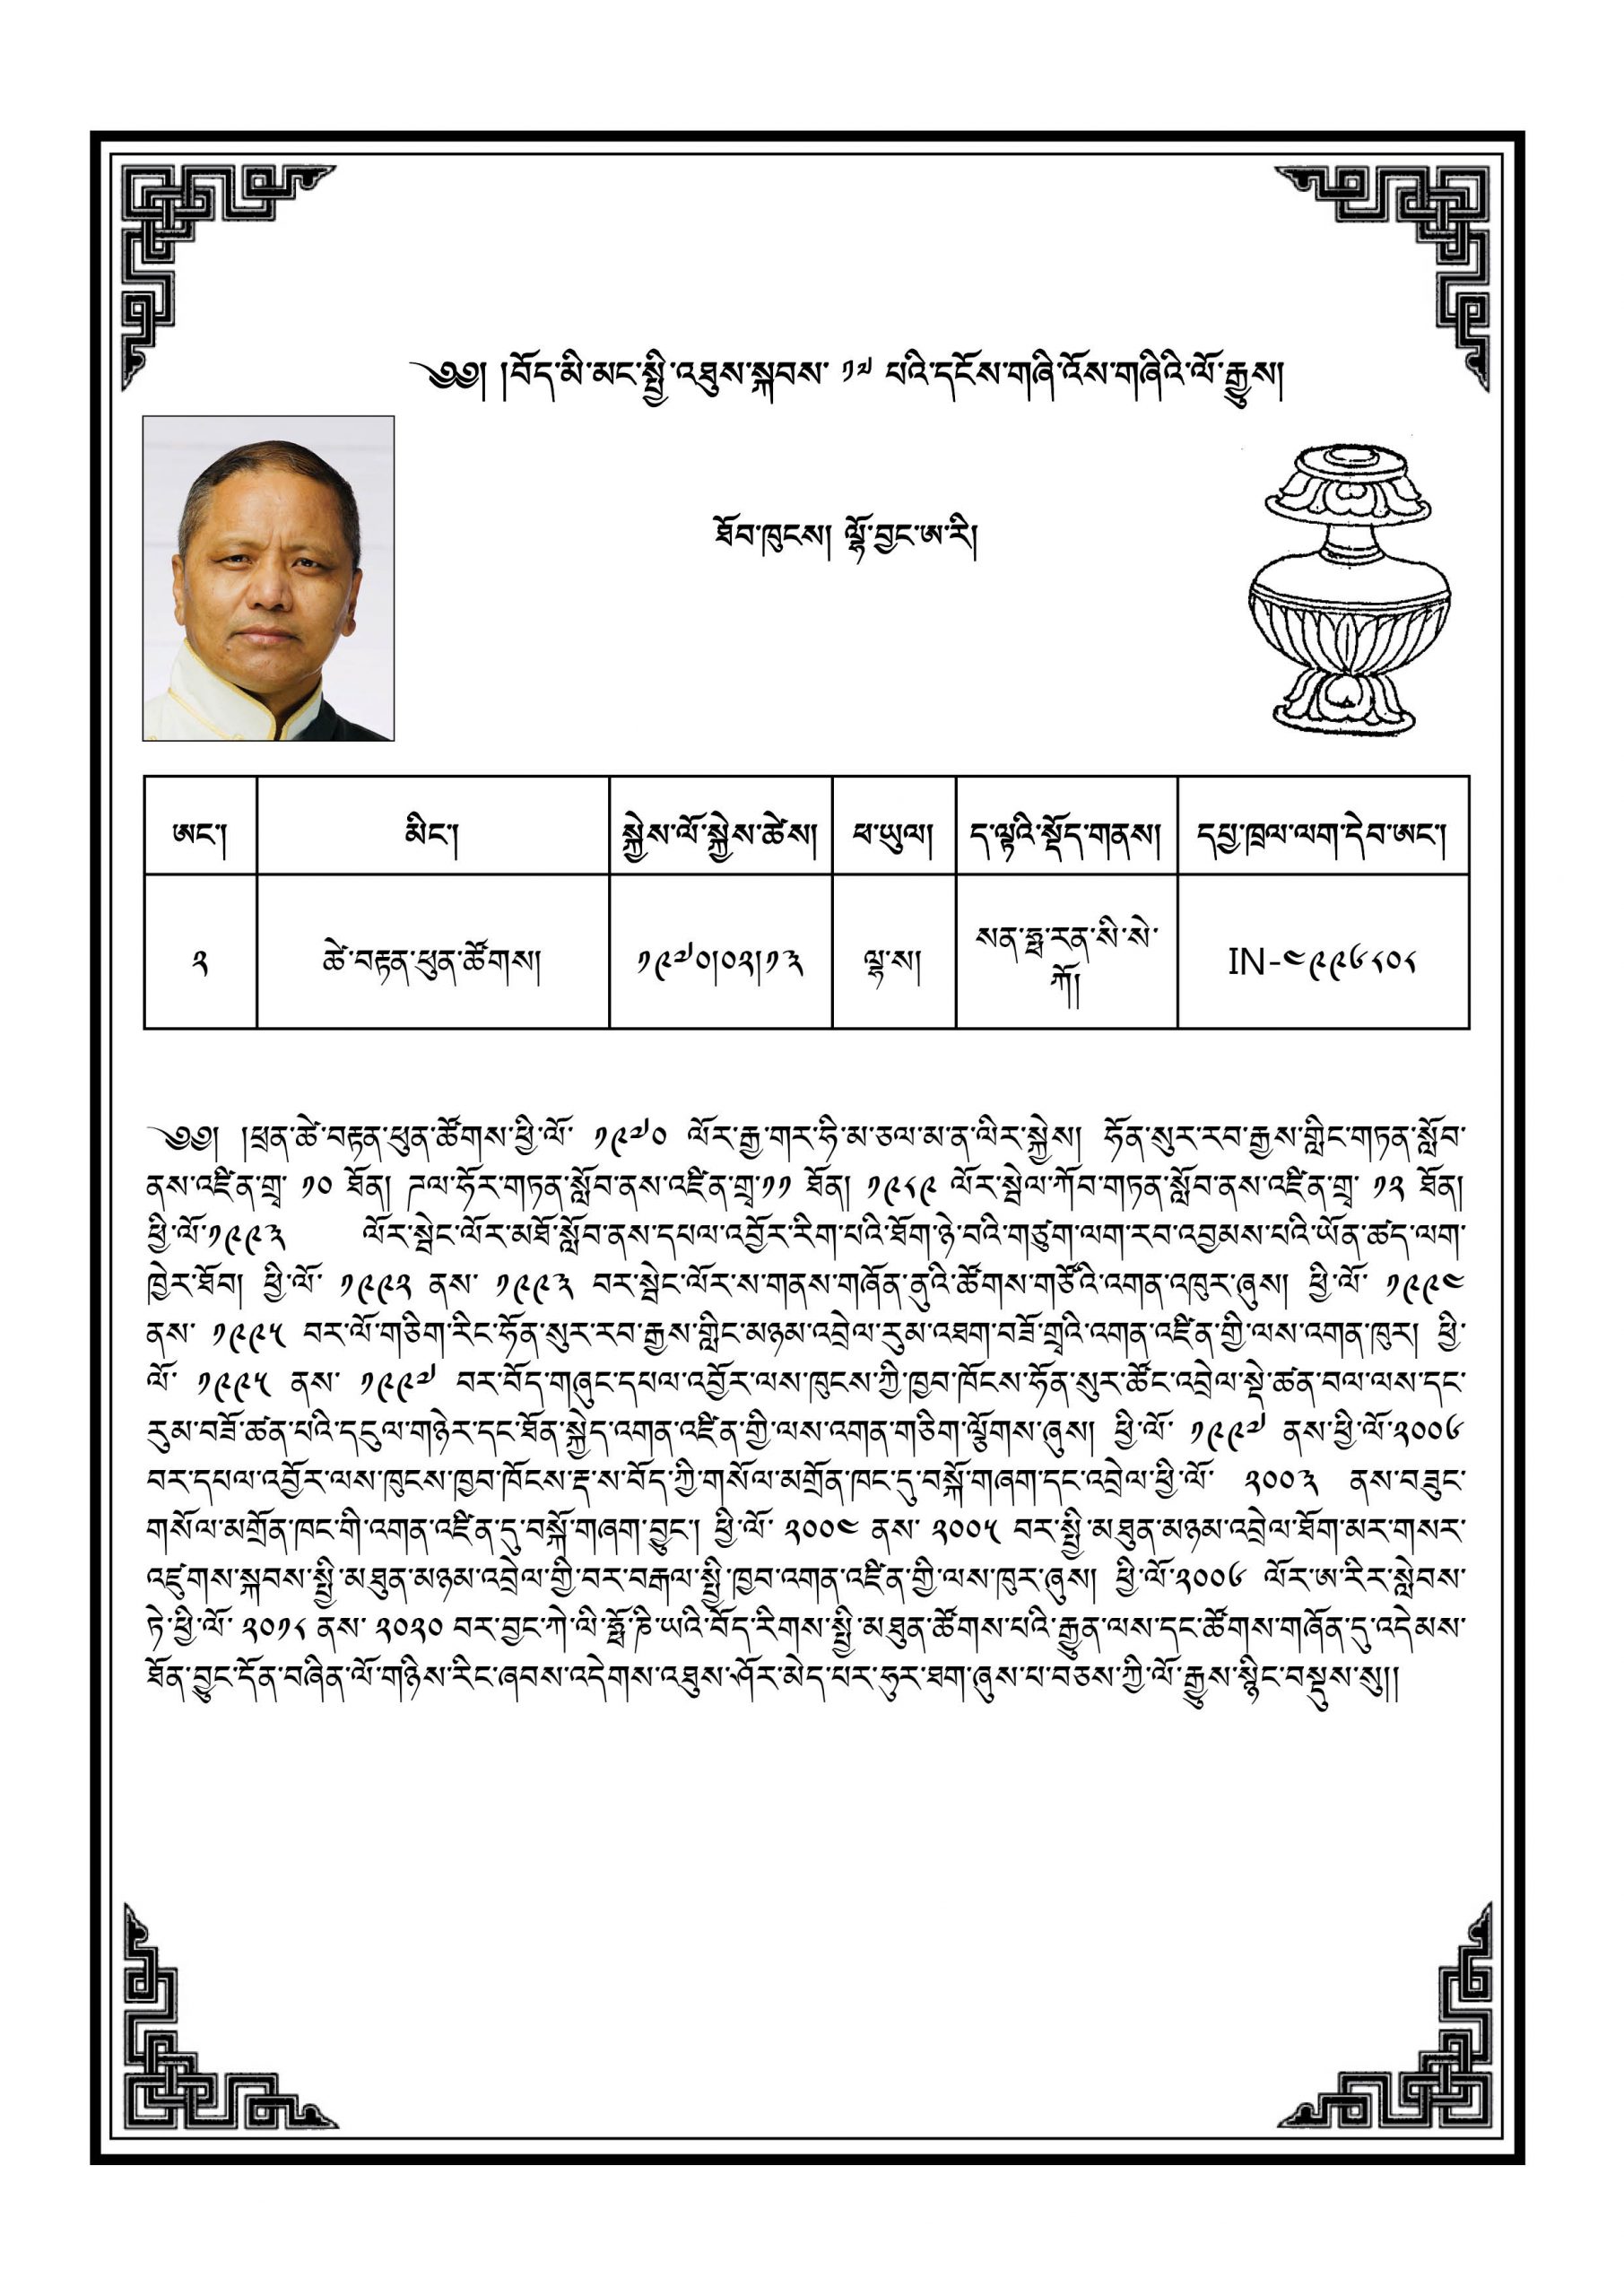 ༄༅། །བོད་མི་མང་སྤྱི་འཐུས་སྐབས་ ༡༧ པའི་དངོས་གཞི་འོས་གཞིའི་ལོ་རྒྱུས།
ཐོབ་ཁུངས། ལྷོ་བྱང་ཨ་རི།
ཨང༌། མིང༌། སྐྱེས་ལོ་སྐྱེས་ཚེས། ཕ་ཡུལ། ད་ལྟའི་སྡོད་གནས། དཔྱ་ཁྲལ་ལག་དེབ་ཨང༌།
༢ ཚེ་བརྟན་ཕུན་ཚོགས། ༡༩༧༠།༠༢།༡༣ ལྷ་ས། སན་ཧྥ་རན་སི་སེ་
ཀོ། IN-༤༩༩༦༨༠༨
༄༅། །ཕྲན་ཚེ་བརྟན་ཕུན་ཚོགས་ཕྱི་ལོ་ ༡༩༧༠ ལོར་རྒྱ་གར་ཧི་མ་ཅལ་མ་ན་ལིར་སྐྱེས། ཧོན་སུར་རབ་རྒྱས་གླིང་གཏན་སློབ་
ནས་འཛིན་གྲྭ་ ༡༠ ཐོན། ཌལ་ཧོར་གཏན་སློབ་ནས་འཛིན་གྲྭ་༡༡ ཐོན། ༡༩༨༩ ལོར་སྦེལ་ཀོབ་གཏན་སློབ་ནས་འཛིན་གྲྭ་ ༡༢ ཐོན།
ཕྱི་ལོ་༡༩༩༣ ལོར་སྦེང་ལོར་མཐོ་སློབ་ནས་དཔལ་འབྱོར་རིག་པའི་ཐོག་ཉེ་བའི་གཙུག་ལག་རབ་འབྱམས་པའི་ཡོན་ཚད་ལག་
ཁྱེར་ཐོབ། ཕྱི་ལོ་ ༡༩༩༢ ནས་ ༡༩༩༣ བར་སྦེང་ལོར་ས་གནས་གཞོན་ནུའི་ཚོགས་གཙོའི་འགན་འཁུར་ཞུས། ཕྱི་ལོ་ ༡༩༩༤
ནས་ ༡༩༩༥ བར་ལོ་གཅིག་རིང་ཧོན་སུར་རབ་རྒྱས་གླིང་མཉམ་འབྲེལ་རུམ་འཐག་བཟོ་གྲྭའི་འགན་འཛིན་གྱི་ལས་འགན་ཁུར། ཕྱི་
ལོ་ ༡༩༩༥ ནས་ ༡༩༩༧ བར་བོད་གཞུང་དཔལ་འབྱོར་ལས་ཁུངས་ཀྱི་ཁྱབ་ཁོངས་ཧོན་སུར་ཚོང་འབྲེལ་སྡེ་ཚན་བལ་ལས་དང་
རུམ་བཟོ་ཚན་པའི་དངུལ་གཉེར་དང་ཐོན་སྐྱེད་འགན་འཛིན་གྱི་ལས་འགན་གཅིག་ལྕོགས་ཞུས། ཕྱི་ལོ་ ༡༩༩༧ ནས་ཕྱི་ལོ་༢༠༠༦
བར་དཔལ་འབྱོར་ལས་ཁུངས་ཁྱབ་ཁོངས་རྡ་ས་བོད་ཀྱི་གསོལ་མགྲོན་ཁང་དུ་བསྐོ་གཞག་དང་འབྲེལ་ཕྱི་ལོ་ ༢༠༠༣ ནས་བཟུང་
གསོལ་མགྲོན་ཁང་གི་འགན་འཛིན་དུ་བསྐོ་གཞག་བྱུང་། ཕྱི་ལོ་ ༢༠༠༤ ནས་ ༢༠༠༥ བར་སྤྱི་མཐུན་མཉམ་འབྲེལ་ཐོག་མར་གསར་
འཛུགས་སྐབས་སྤྱི་མཐུན་མཉམ་འབྲེལ་གྱི་བར་བརྒལ་སྤྱི་ཁྱབ་འགན་འཛིན་གྱི་ལས་ཁུར་ཞུས། ཕྱི་ལོ་༢༠༠༦ ལོར་ཨ་རིར་སླེབས་
ཏེ་ཕྱི་ལོ་ ༢༠༡༨ ནས་ ༢༠༢༠ བར་བྱང་ཀེ་ལི་ཧྥོ་ཎི་ཡའི་བོད་རིགས་སྤྱི་མཐུན་ཚོགས་པའི་རྒྱུན་ལས་དང་ཚོགས་གཞོན་དུ་འདེམས་
ཐོན་བྱུང་དོན་བཞིན་ལོ་གཉིས་རིང་ཞབས་འདེགས་འཐུས་ཤོར་མེད་པར་ཧུར་ཐག་ཞུས་པ་བཅས་ཀྱི་ལོ་རྒྱུས་སྙིང་བསྡུས་སུ།།